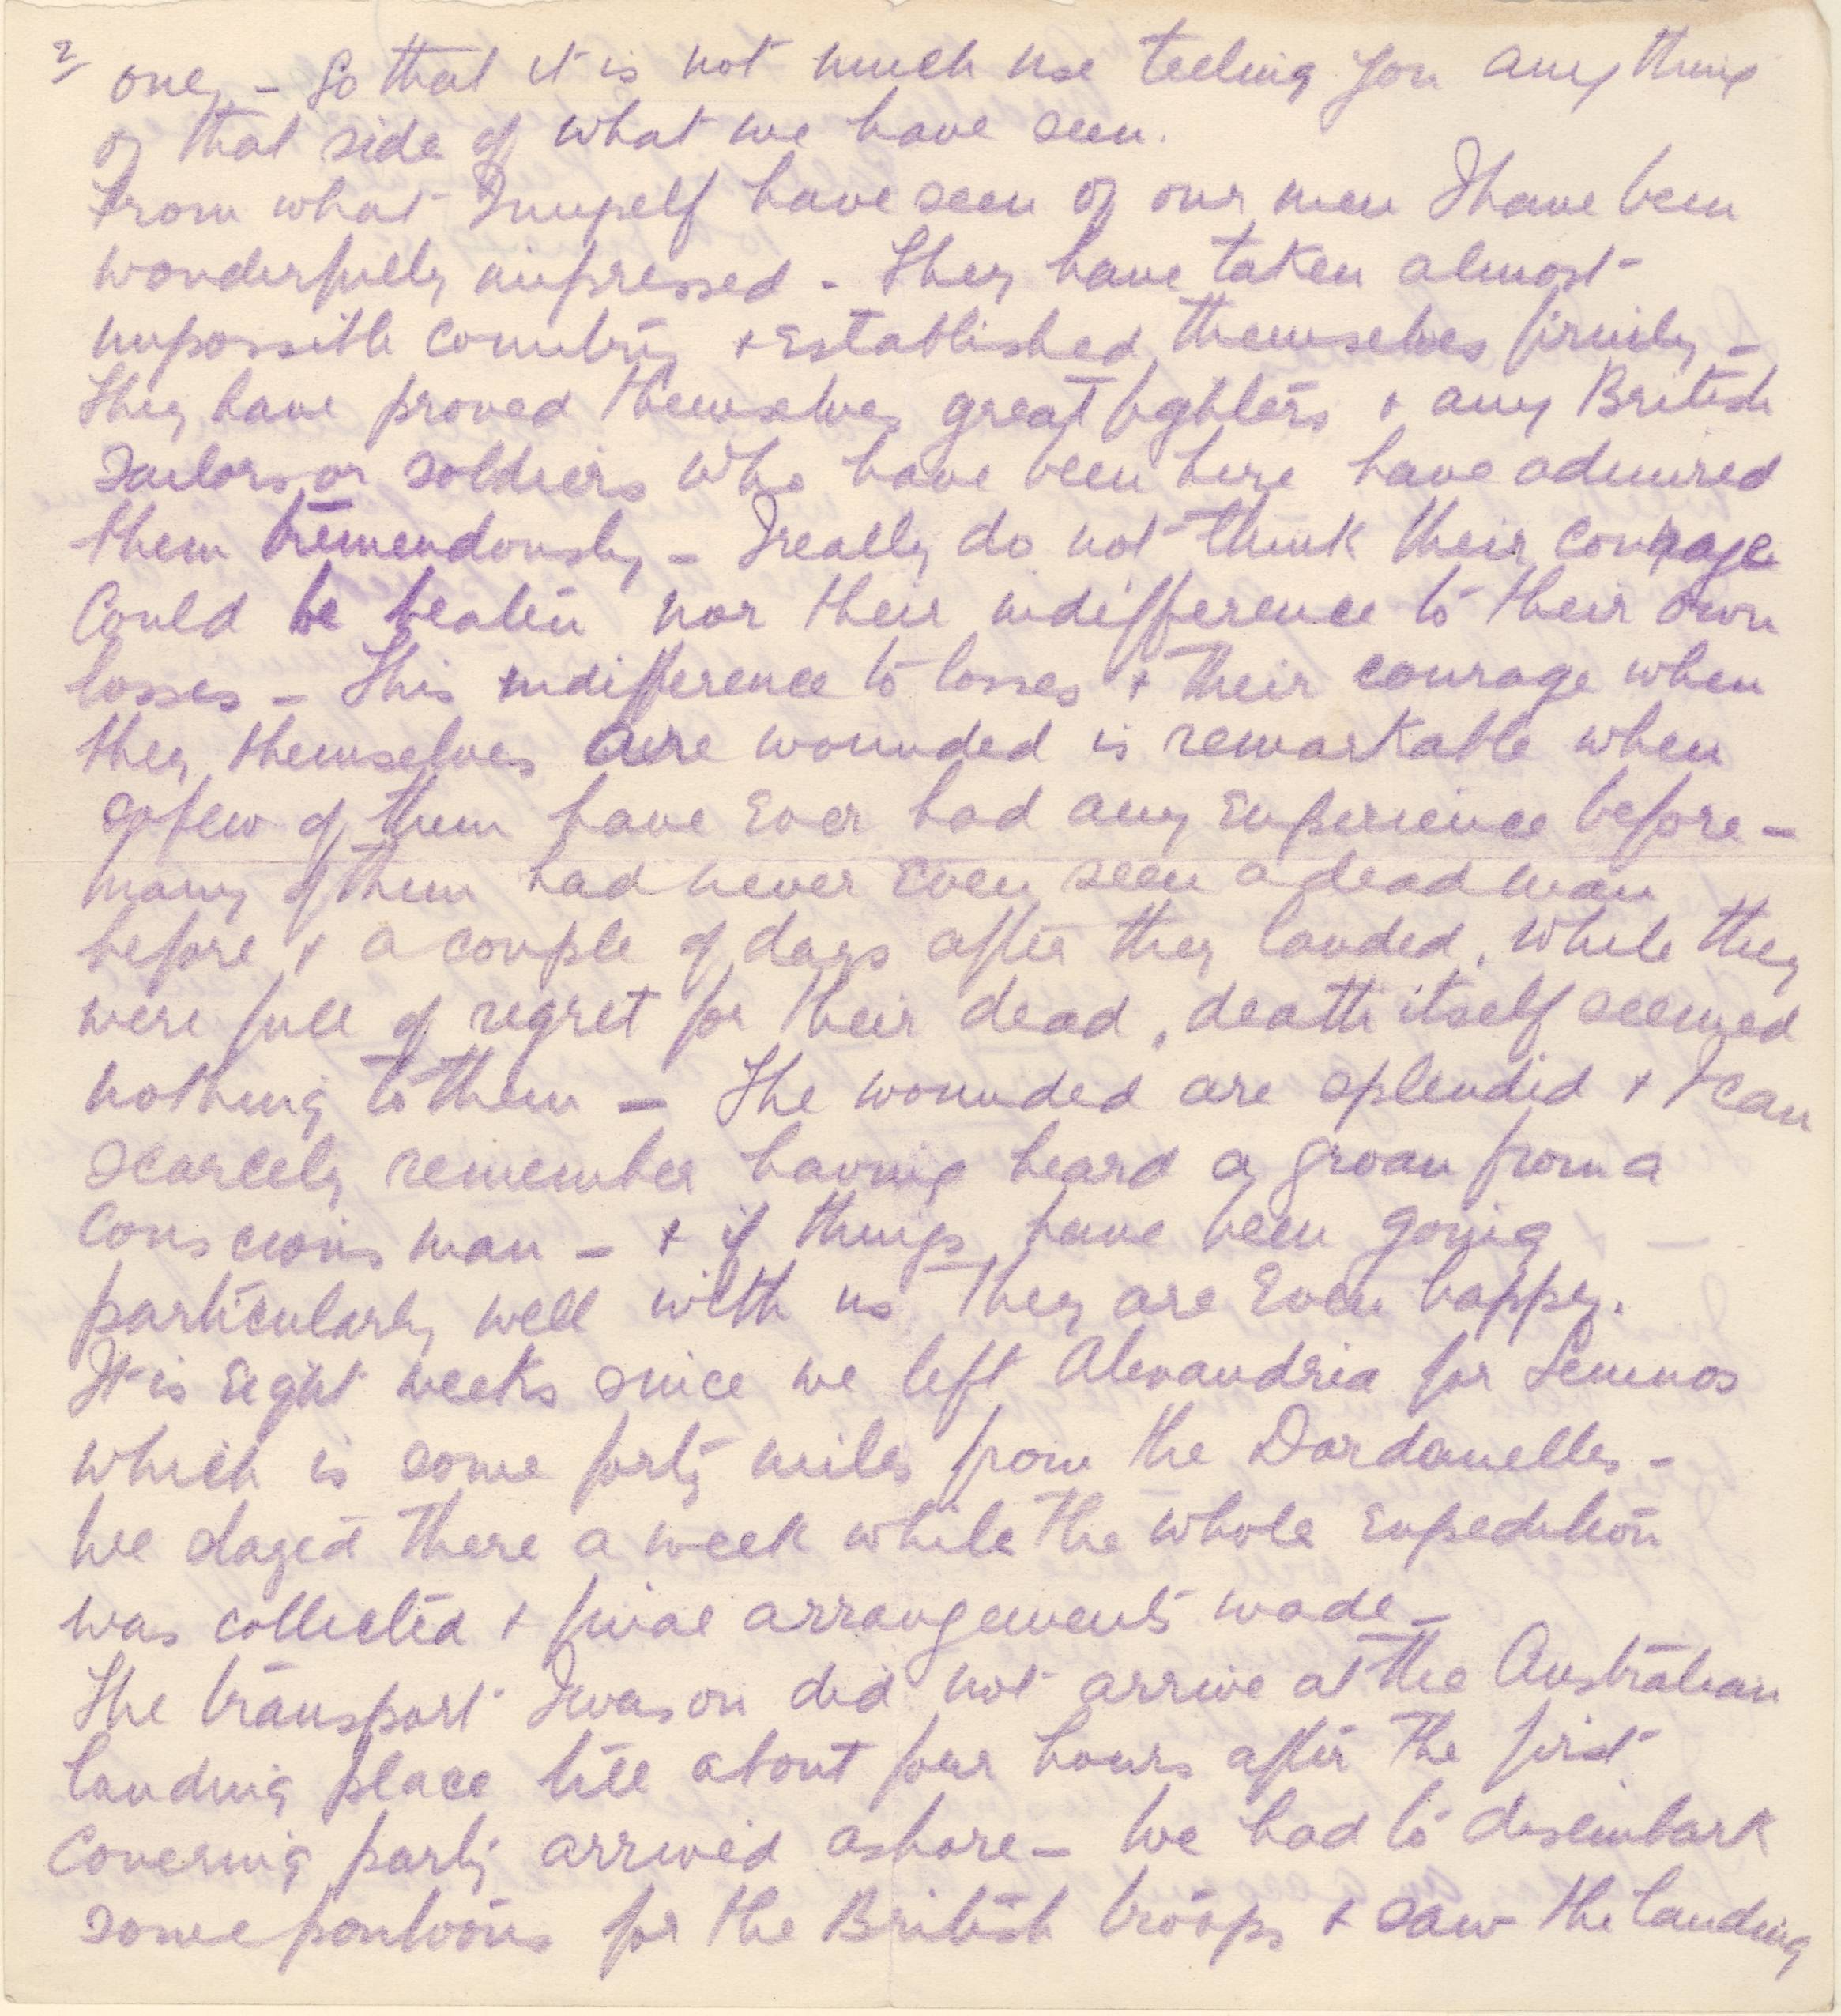 2/ one, - So that it is not much use telling you any thing
of that side of what we have seen.
From what I myself have seen of our men I have been
wonderfully impressed - They have taken almost
impossible country + Established themselves firmly -
They have proved themselves great fighters + any British
Sailors or soldiers who have been here have admired
them tremendously - I really do not think their courage
Could be beaten nor their indifference to their own
losses - This indifference to losses + their courage when
they themselves are wounded is remarkable when
so few of them have Ever had any Experience before -
many of them had never Even seen a dead man
before + a couple of days after they landed, while they
were full of regret for their dead, death itself seemed
nothing to them - The wounded are splendid + I can
scarcely remember having heard a groan from a
Conscious man - + if things have been going
particularly well with us they are Even happy.
It is Eight weeks since we left Alexandria for Lemnos
which is some forty miles from the Dardanelles -
We stayed there a week while the whole Expedition
was collected + final arrangements made -
The transport I was on did not arrive at the Australian
landing place till about four hours after the first
Covering party arrived ashore - We had to disembark
some pontoons for the British troops + saw the landing